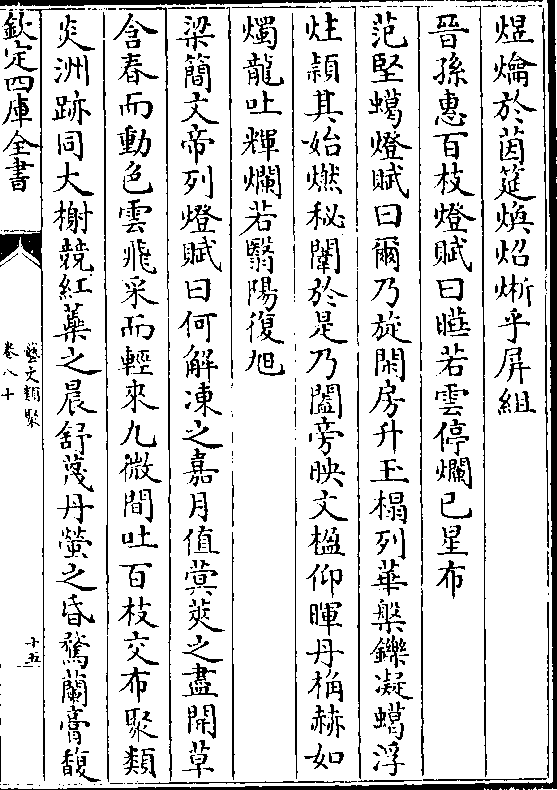 煜爚於茵筵煥炤晣乎屏組
晉孫惠百枝燈賦曰曣若雲停爛已星布
范堅蠟燈賦曰爾乃旋閑房升玉榻列華槃鑠凝蠟浮
炷穎其始燃秘闈於是乃闔旁映文楹仰暉丹桷赫如
燭龍吐輝爛若翳陽復旭
梁簡文帝列燈賦曰何解凍之嘉月值蓂莢之盡開草
含春而動色雲飛采而輕來九微間吐百枝交布聚類
炎洲跡同大榭競紅蘂之晨舒蔑丹螢之昏騖蘭膏馥
欽定四庫全書
藝文類聚
卷八十
十五